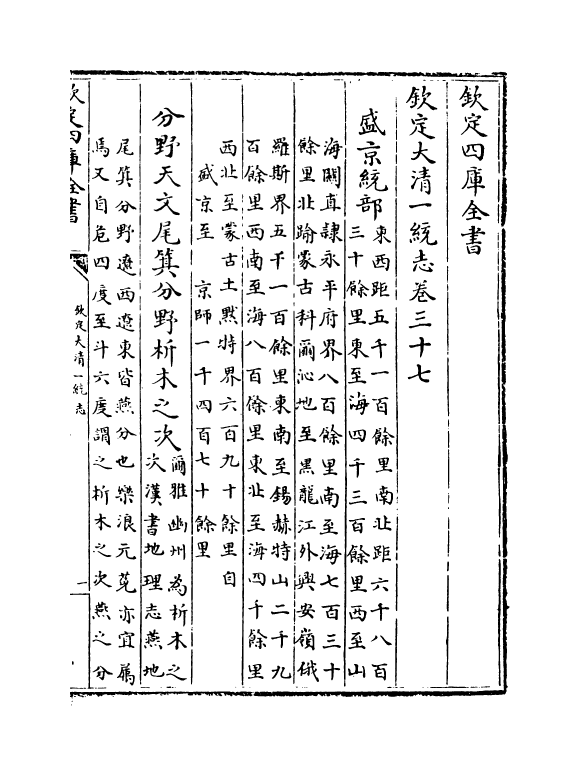 欽定四庫全書
欽定大清一統志卷三十七
盛京統部
東西距五千一百餘里南北距六千八百
三十餘里東至海四千三百餘里西至山
海關直隸永平府界八百餘里南至海七百三十
餘里北踰蒙古科爾沁地至黑龍江外興安嶺俄
羅斯界五千一百餘里東南至錫赫特山二千九
百餘里西南至海八百餘里東北至海四千餘里
西北至蒙古土默特界六百九十餘里自
盛京至 京師一千四百七十餘里
分野天文尾箕分野析木之次
爾雅幽州為析木之
次漢書地理志燕地
尾箕分野遼西遼東皆燕分也樂浪元菟亦宜屬
焉又自危四度至斗六度謂之析木之次燕之分
欽定四庫全書
欽定大清一統志
一